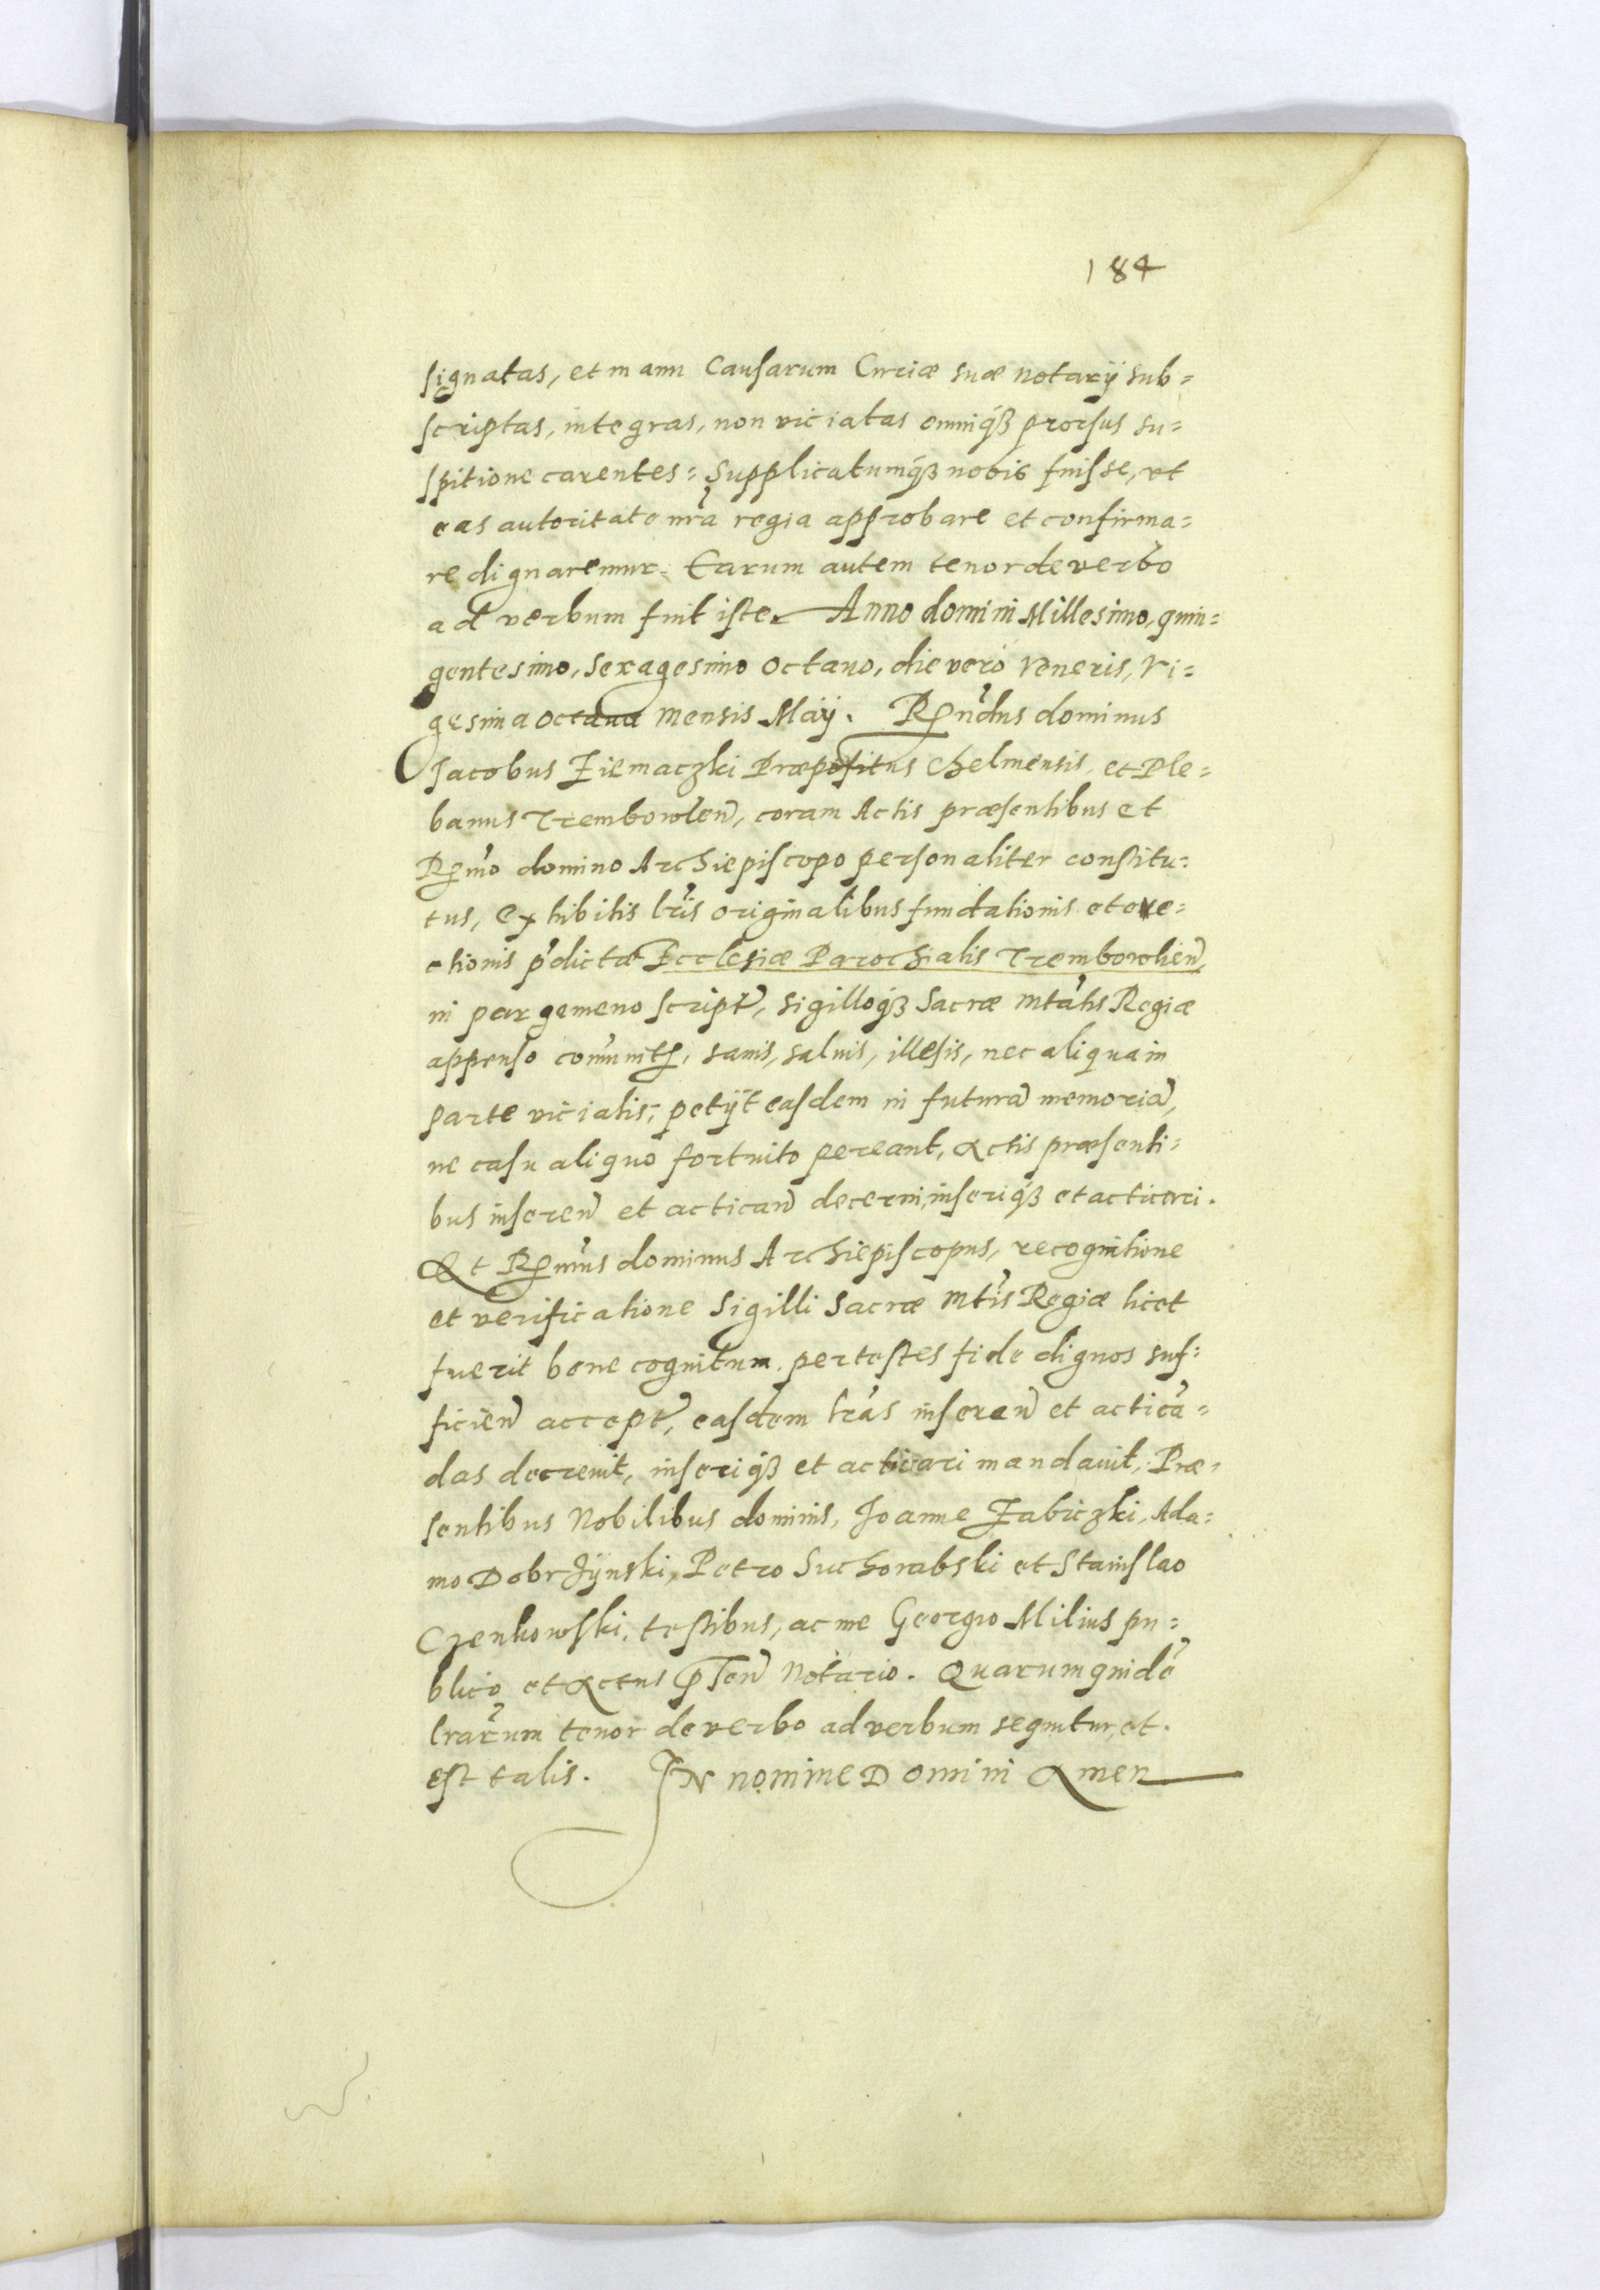 184
signatas, et manu Causarum Curiæ suæ Notarÿ sub=
scriptas, integras, non viciatas omniq́ꝫ prorsus su=
spitione carentes: Supplicatumq́ꝫ nobis fuisse, vt
eas autoritate nr̃a regia approbare et confirma=
re dignaremur. Earum autem tenor de verbo
ad verbum fuit iste. Anno domini Millesimo, quin=
gentesimo, sexagesimo octauo, die vero Veneris, Vi=
gesima octaua mensis Maÿ. Rndus dominus
Jacobus Ziemaczki Præpositus Chelmensis, et Ple=
banus Trembowlen̄, coram Actis præsentibus et
Rmo domino Archiepiscopo personaliter constitu=
tus, exhibitis lr̃is originalibus fundationis et ere=
ctionis p̃dictæ Ecclesiæ Parochialis Trembowlien̄,
in pargameno script̄, sigilloq́ꝫ Sacræ Mtatis Regiæ
appenso com̃unit̄, sanis, saluis, illesis, nec aliqua in
parte viciatis, petÿt easdem in futurā memoriā,
ne casu aliquo fortuito pereant, Actis præsenti=
bus inseren̄ et actican̄ decerni, inseriq́ꝫ et acticari.
Et Rmus dominus Archiepiscopus, recognitione
et verificatione Sigilli Sacræ Mtis Regiæ licet
fuerit bene cognitum, per testes fide dignos suf=
ficien̄ accept̄, easdem lr̃as inseren̄ et acticā=
das decreuit, inseriq́ꝫ et acticari mandauit, Præ=
sentibus Nobilibus dominis, Joanne Zabiczki, Ada=
mo Dobrzÿnski, Petro Suchorabski et Stanislao
Czenkowski, testibus, ac me Georgio Milius pu=
blico et Actus p̄sen̄ Notario. Quarum quidē
lr̃arum tenor de verbo ad verbum sequitur, et
est talis. IN nomine Domini Amen